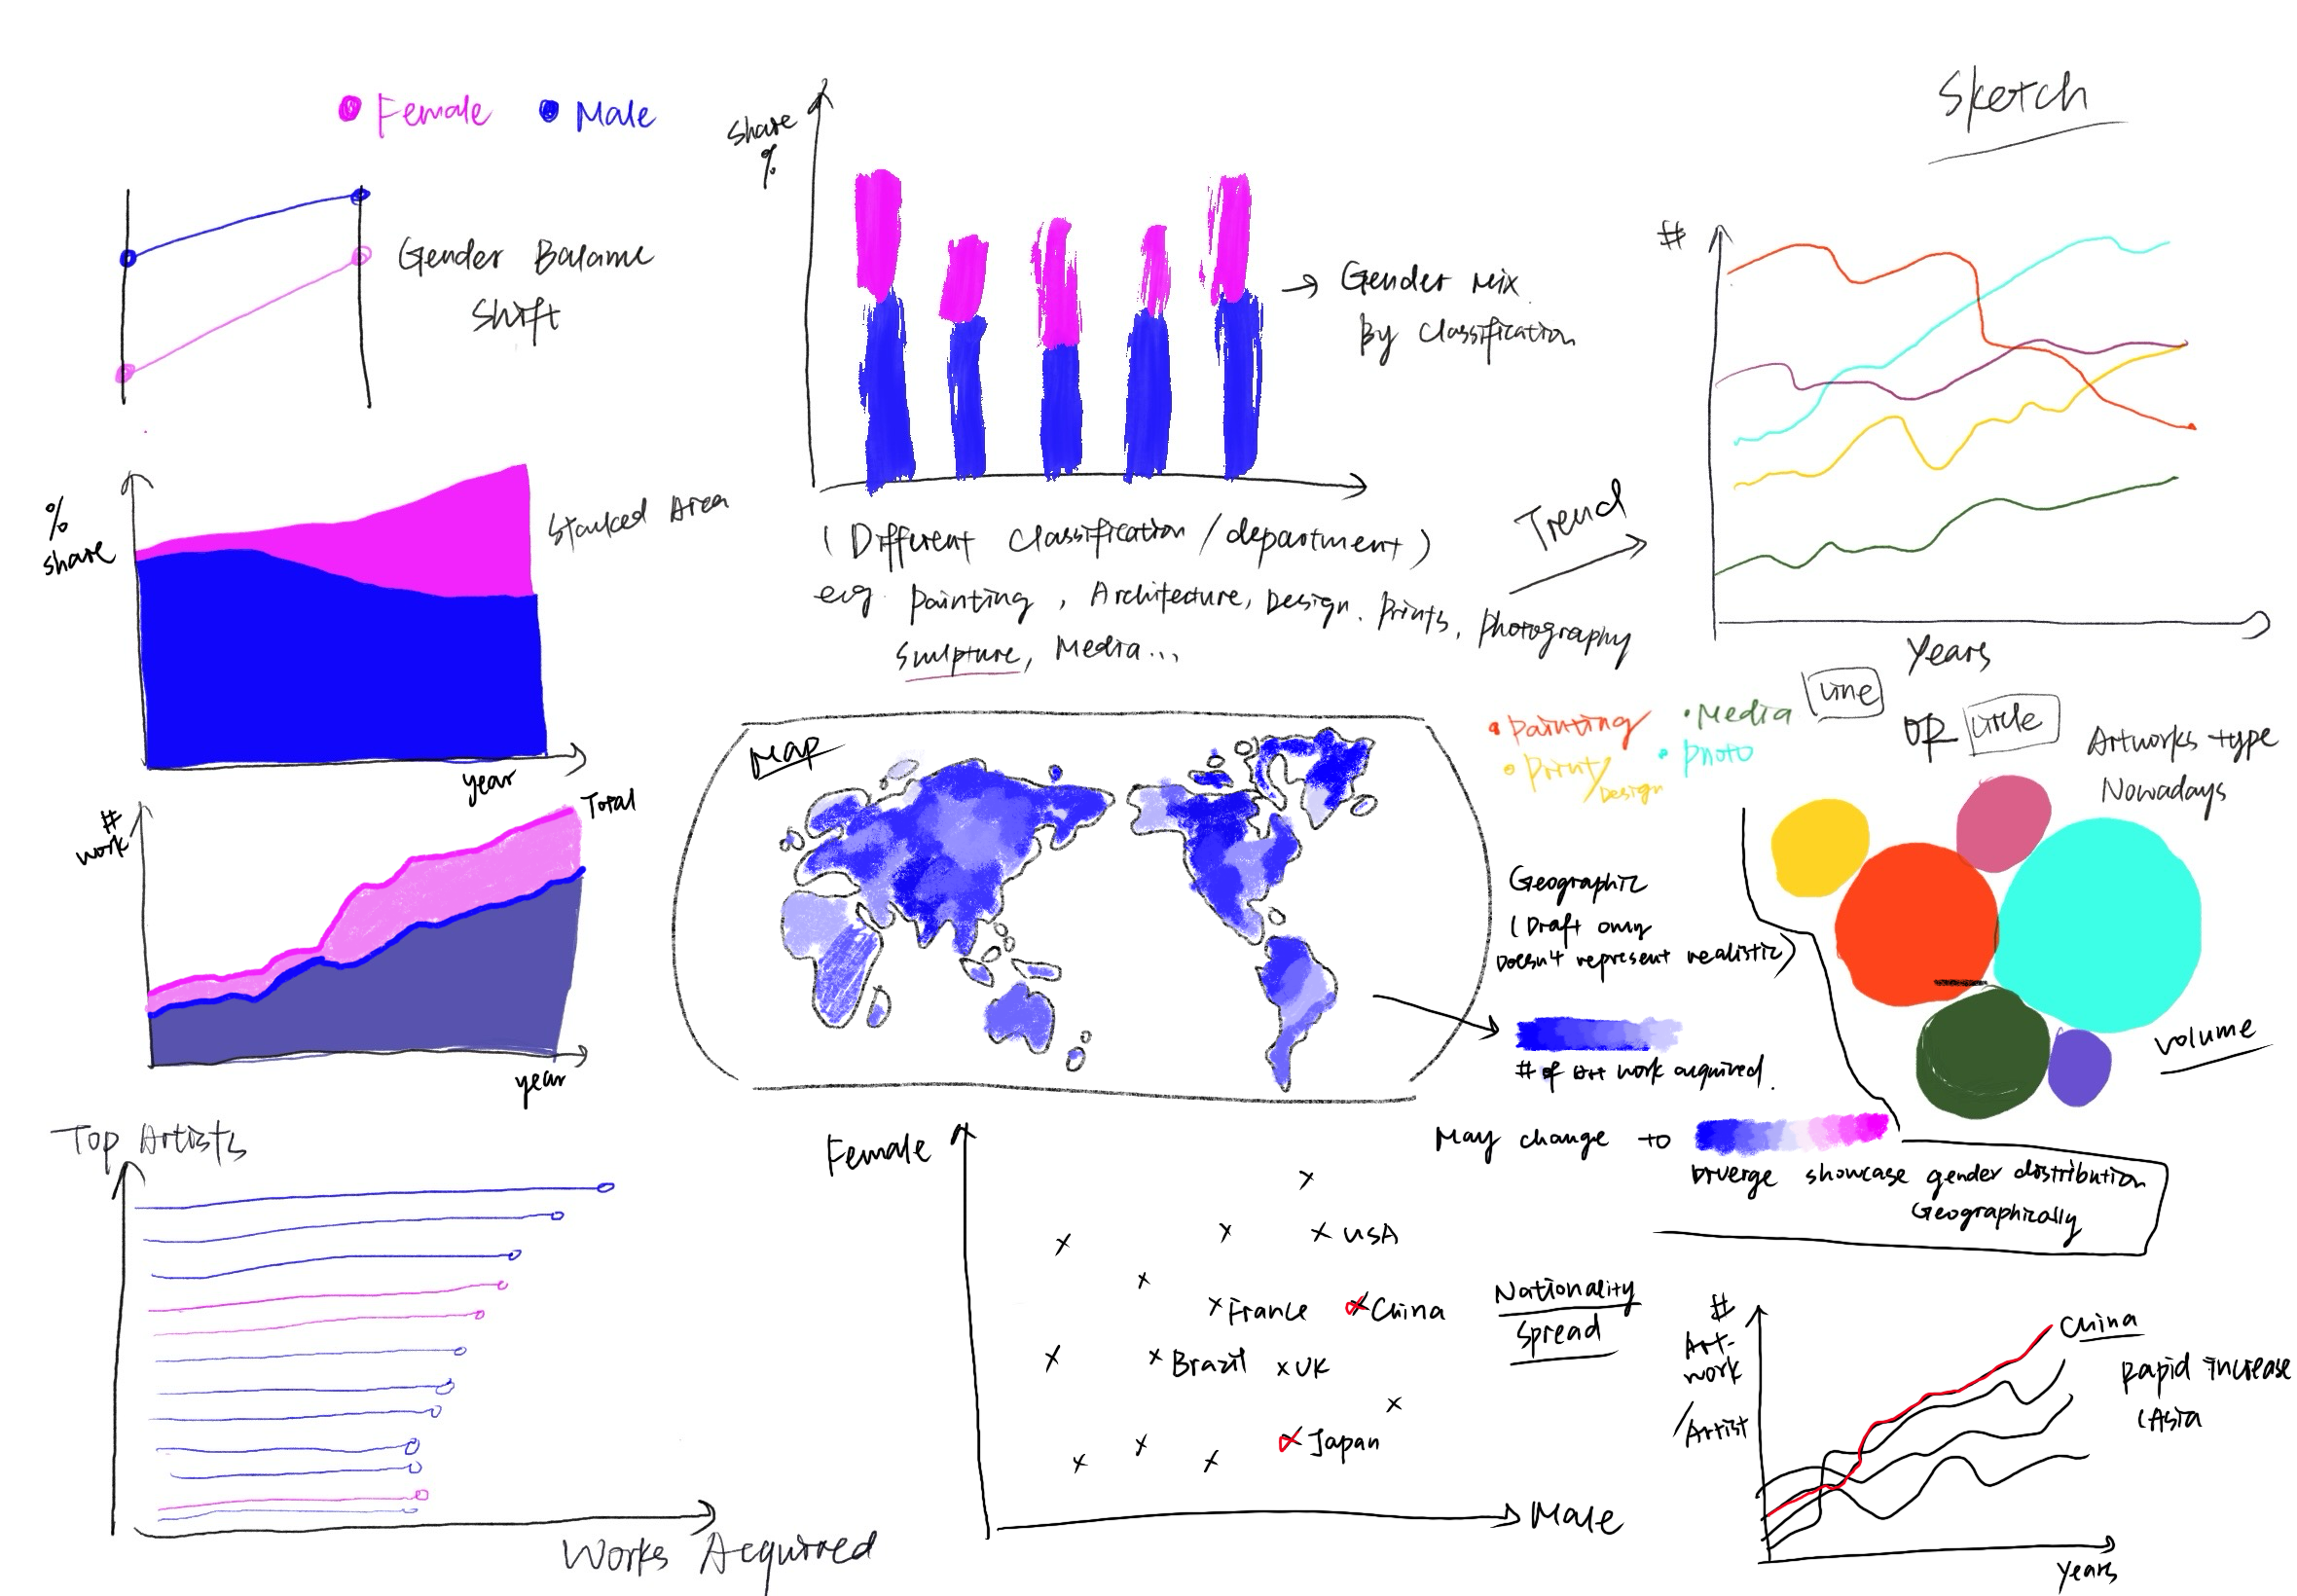 Sketch
Female
Male
Gender Balance
Shift
Share
%
Gender Mix
By Classification
(Different Classification / department)
e.g. Painting, Architecture, Design. Prints, Photography
Sculpture, Media...
Trend
#
Years
Line
OR
Circle
Painting
Media
Print/
Design
Photo
Artworks type
Nowadays
Volume
%
share
Stacked Area
year
#
work
Total
year
Map
Geographic
(Draft only
Doesn't represent realistic)
# of art work acquired.
May change to
Diverge showcase gender distribution
Geographically
Top Artists
Works Acquired
Female
USA
France
China
Brazil
UK
Japan
Male
Nationality
Spread
#
Art-
work
/Artist
China
Rapid increase
(Asia
Years